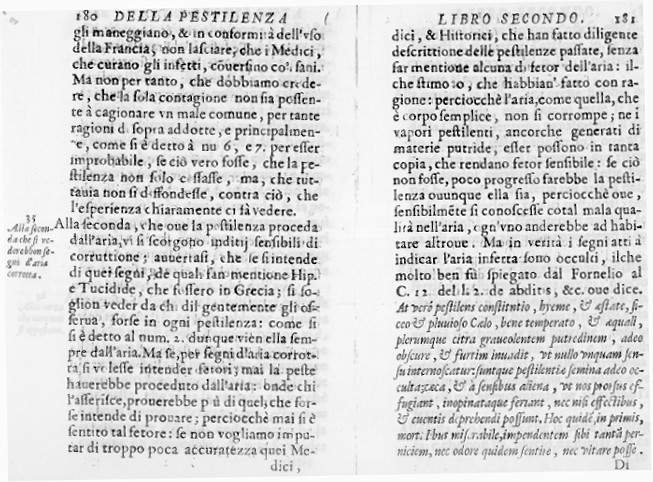 180 DELLA PESTILENZA
gli maneggiano, & in conformità dell'vso
della Francia, non lasciare, che i Medici,
che curano gli infetti, coversino co' sani.
Ma non per tanto, che dobbiamo crede-
re, che la sola contagione non sia possen-
te à cagionare vn male comune, per tante
ragioni di sopra addotte, e principalmen-
te, come si è detto à nu 6, e 7. per esser
improbabile, se ciò vero fosse, che la pe-
stilenza non solo cessasse, ma, che tut-
tauia non si diffondesse, contra ciò, che
l'esperienza chiaramente ci fà vedere.
35
Alla secon-
da che si ve-
derebbon se-
gni d'aria
corrotta.
Alla seconda, che oue la pestilenza proceda
dall'aria, vi si scorgono inditij sensibili di
corruttione; auuertasi, che se si intende
di quei segni, de quali fan mentione Hip.
e Tucidide, che fossero in Grecia; si so-
glion veder da chi diligentemente gli os-
serua, forse in ogni pestilenza: come si
si è detto al num. 2. dunque vien ella sem-
pre dall'aria. Ma se, per segni d'aria corrot-
ta, si volesse intender fetori; mai la peste
hauerebbe proceduto dall'aria: onde chi
l'asserisce, prouerebbe più di quel, che for-
se intende di prouare; perciocchè mai si è
sentito tal fetore: se non vogliamo impu-
tar di troppo poca accuratezza quei Me-
dici,
LIBRO SECONDO. 181
dici, & Historici, che han fatto diligente
descrittione delle pestilenze passate, senza
far mentione alcuna di fetor dell'aria: il-
che stimo io, che habbian' fatto con ra-
gione: perciocchè l'aria, come quella, che
è corpo semplice, non si corrompe; ne i
vapori pestilenti, ancorche generati di
materie putride, esser possono in tanta
copia, che rendano fetor sensibile: se ciò
non fosse, poco progresso farebbe la pesti-
lenza ouunque ella sia, perciocchè oue,
sensibilmēte si conoscesse cotal mala qua-
lità nell'aria, ogn'vno anderebbe ad habi-
tare altroue. Ma in verità i segni atti à
indicar l'aria infetta sono occulti, ilche
molto ben fù spiegato dal Fornelio al
C. 12 del li 2. de abditis, &c. oue dice.
At verò pestilens constitutio, hyeme, & æstate, si-
cco & pluuioso Cælo, bene temperato, & æquali,
plerumque citra graueolentem putredinem, adeo
obscure, & furtim inuadit, vt nullo vnquam sen-
su internoscatur: suntque pestilentiæ semina adeo oc-
culta, cæca, & à sensibus aliena, vt nos prorsus ef-
fugiant, inopinataque feriant, nec nisi effectibus,
& euentis deprehendi possunt. Hoc quidē, in primis,
mortalibus miserabile, impendentem sibi tantā per-
niciem, nec odore quidem sentire, nec vitare posse.
Di